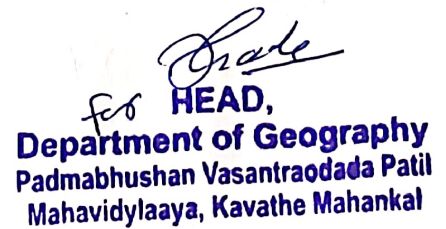 for HEAD,
Department of Geography
Padmabhushan Vasantraodada Patil
Mahavidylaaya, Kavathe Mahankal